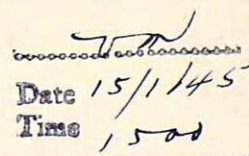 Date 15/1/45
Time 1500